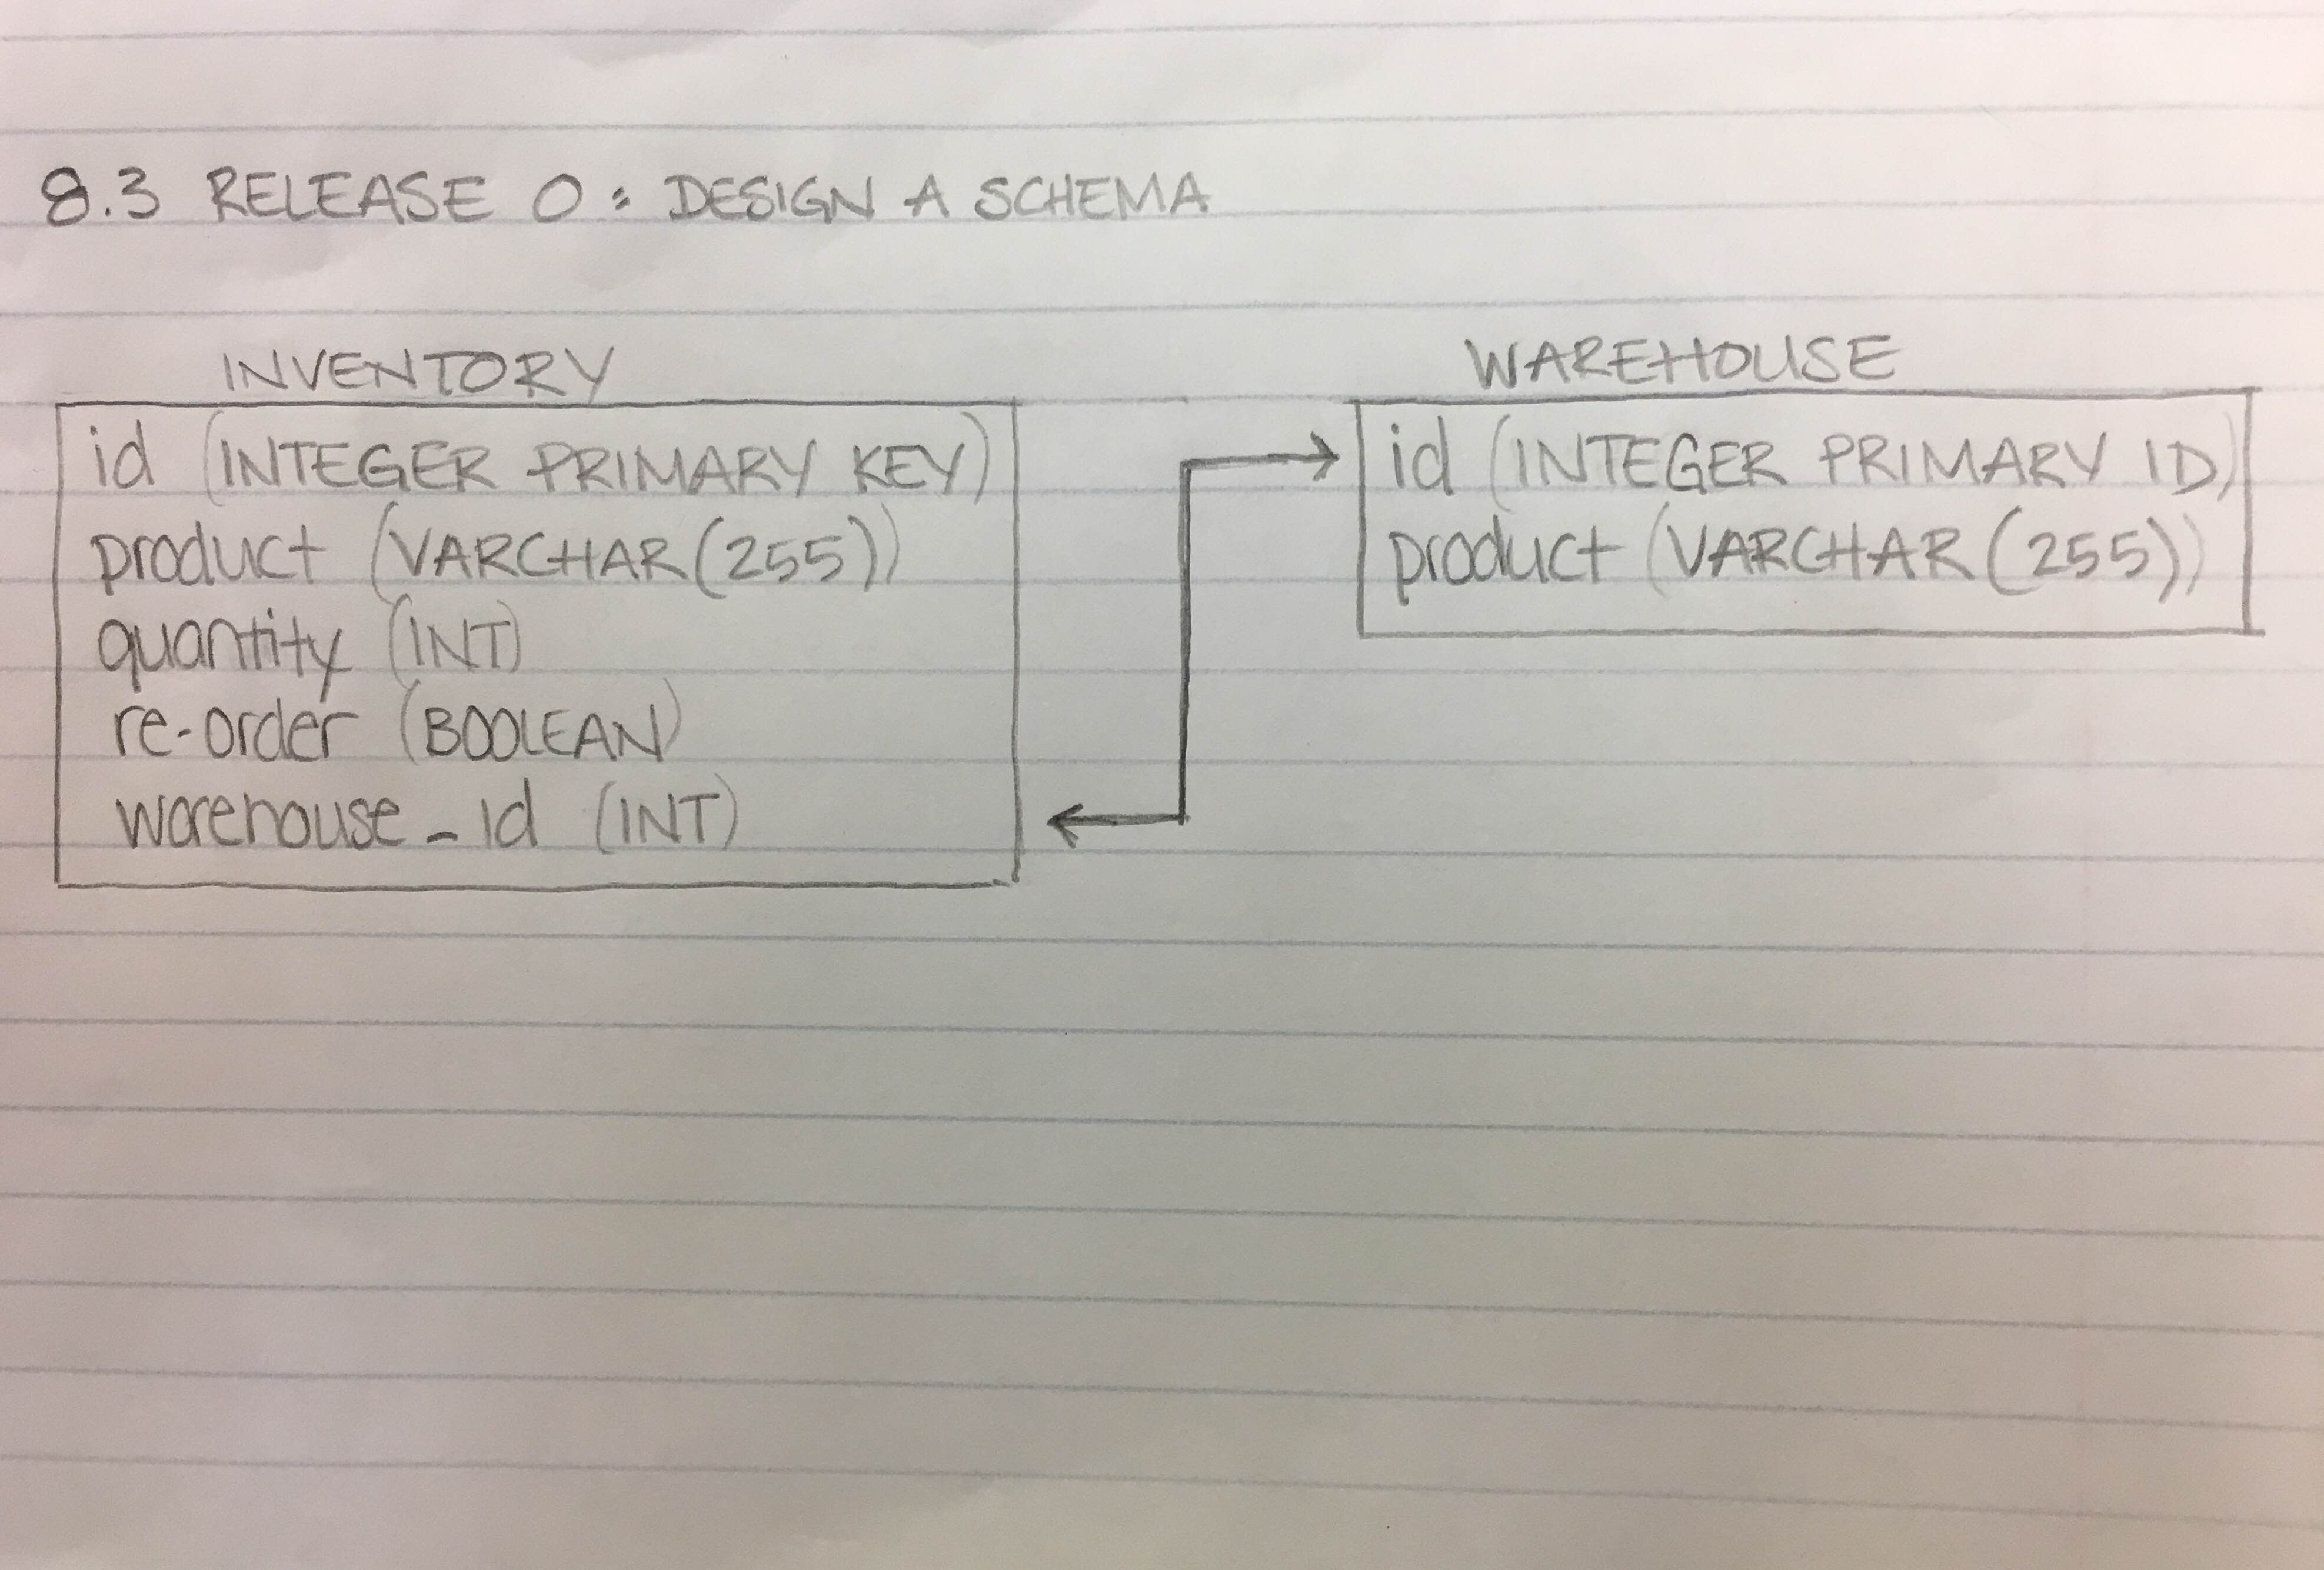 8.3 RELEASE 0: DESIGN A SCHEMA
INVENTORY
id (INTEGER PRIMARY KEY)
product (VARCHAR(255))
quantity (INT)
re-order (BOOLEAN)
warehouse_id (INT)
WAREHOUSE
id (INTEGER PRIMARY ID)
product (VARCHAR(255))